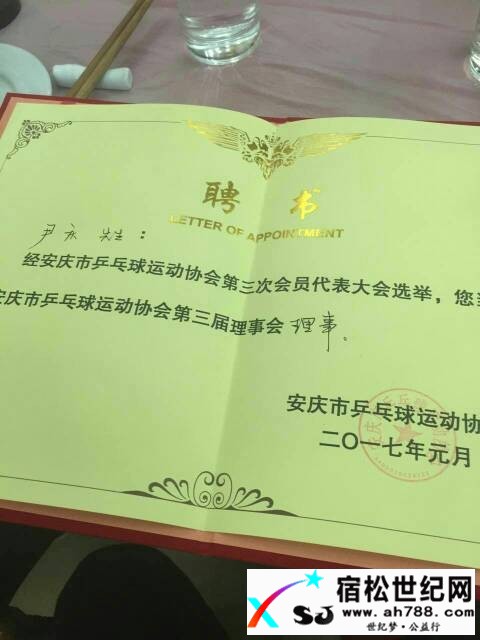 聘书
LETTER OF APPOINTMENT
尹永 先生:
经安庆市乒乓球运动协会第三次会员代表大会选举,您
安庆市乒乓球运动协会第三届理事会理事。
安庆市乒乓球运动协
二〇一七年元月
SJ
宿松世纪网
www.ah788.com
世纪梦·公益行